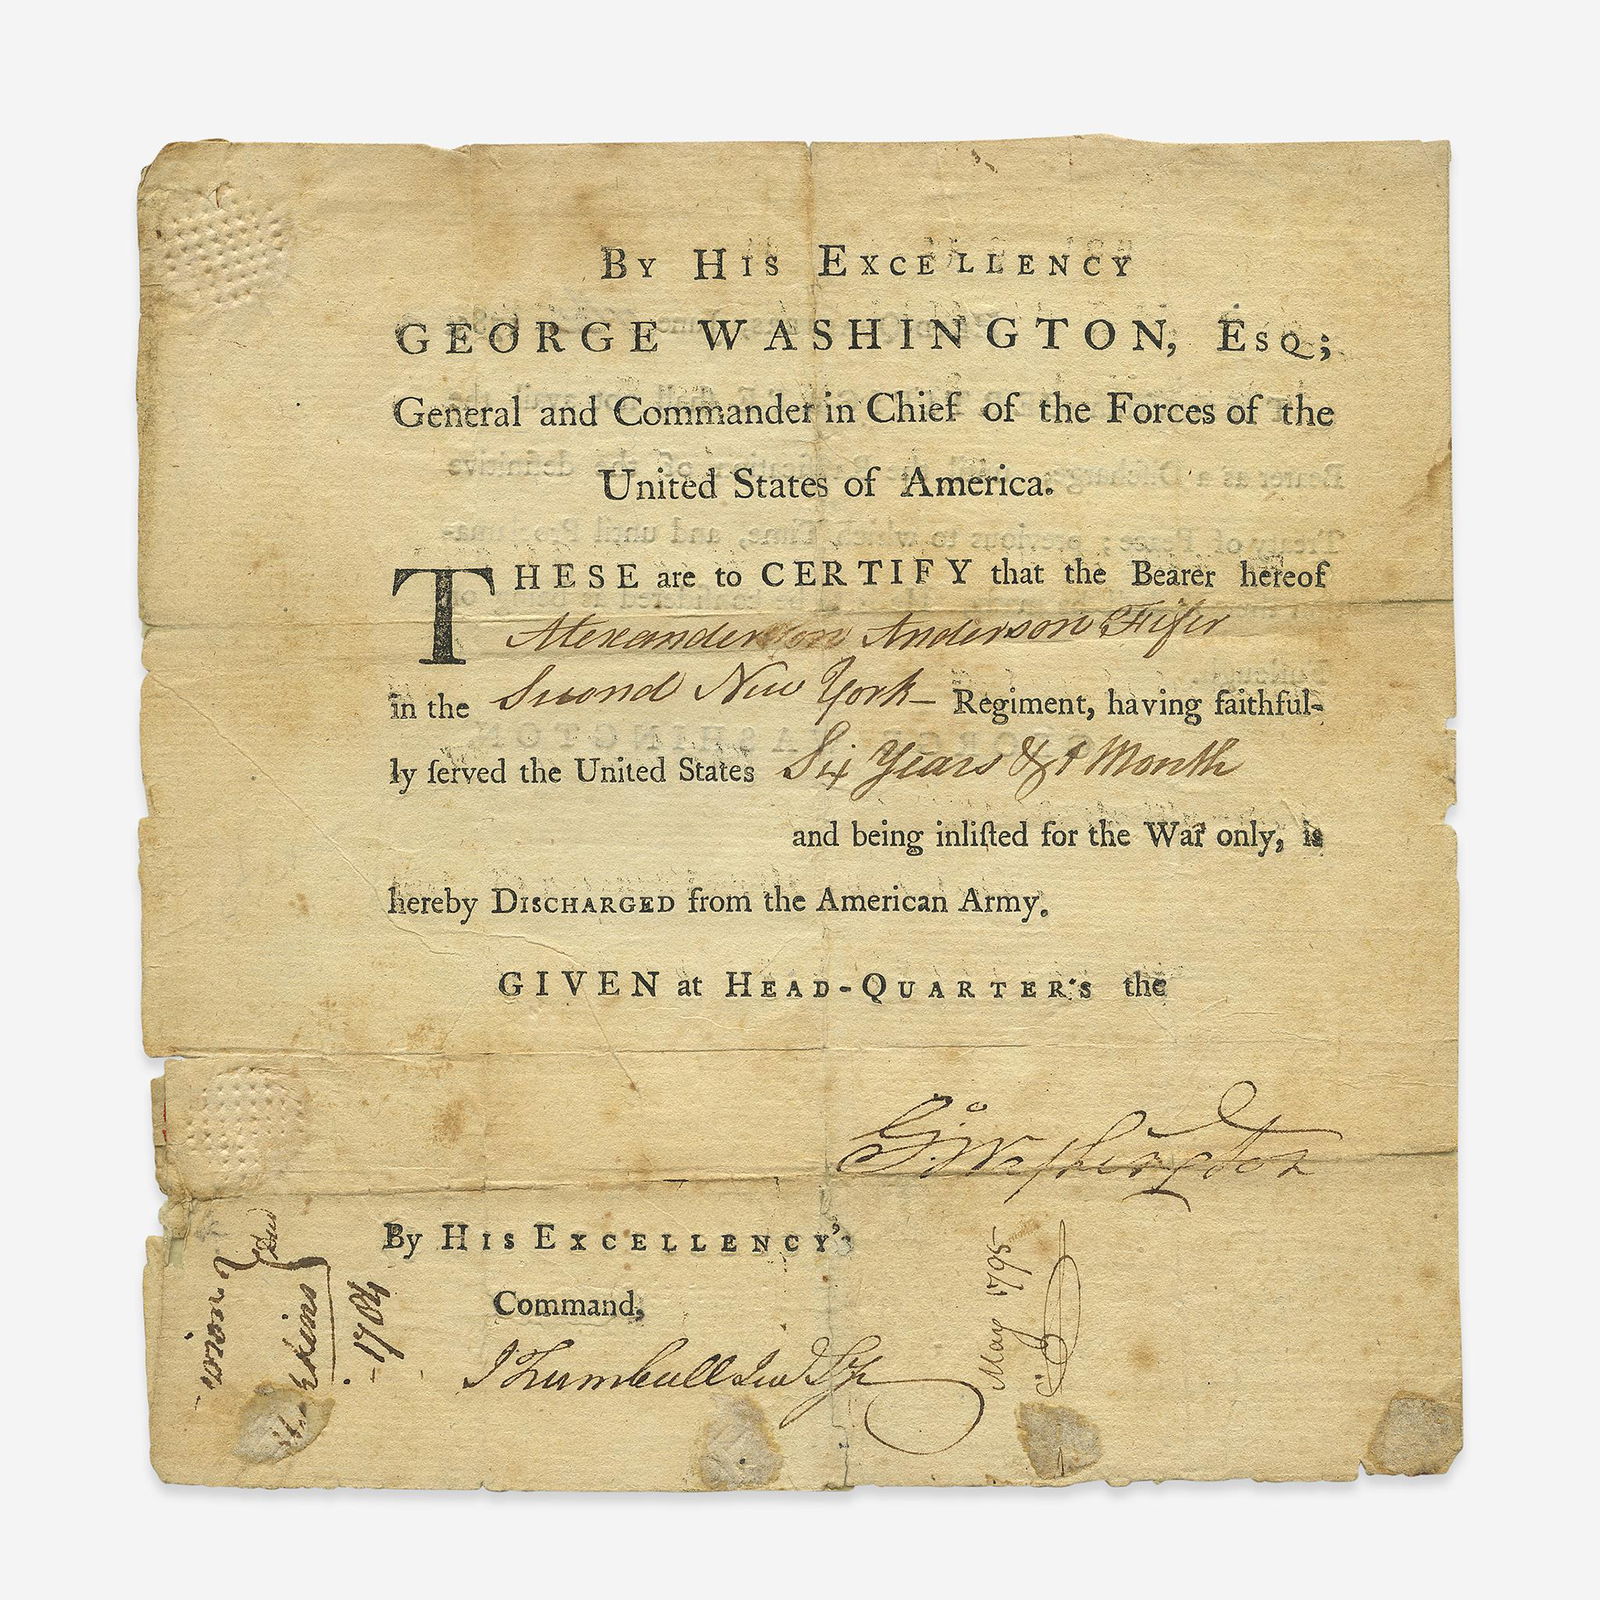 By His Excellency
GEORGE WASHINGTON, Esq;
General and Commander in Chief of the Forces of the
United States of America.
THESE are to CERTIFY that the Bearer hereof
Anderson Fifer
in the Second New York – Regiment, having faithful-
ly ſerved the United States Six Years & 1 Month
and being inliſted for the War only, is
hereby Discharged from the American Army.
GIVEN at Head-Quarter's the
G:Washington
By His Excellency's
Command,
JTrumbull Jun Sy
May 1795
1784